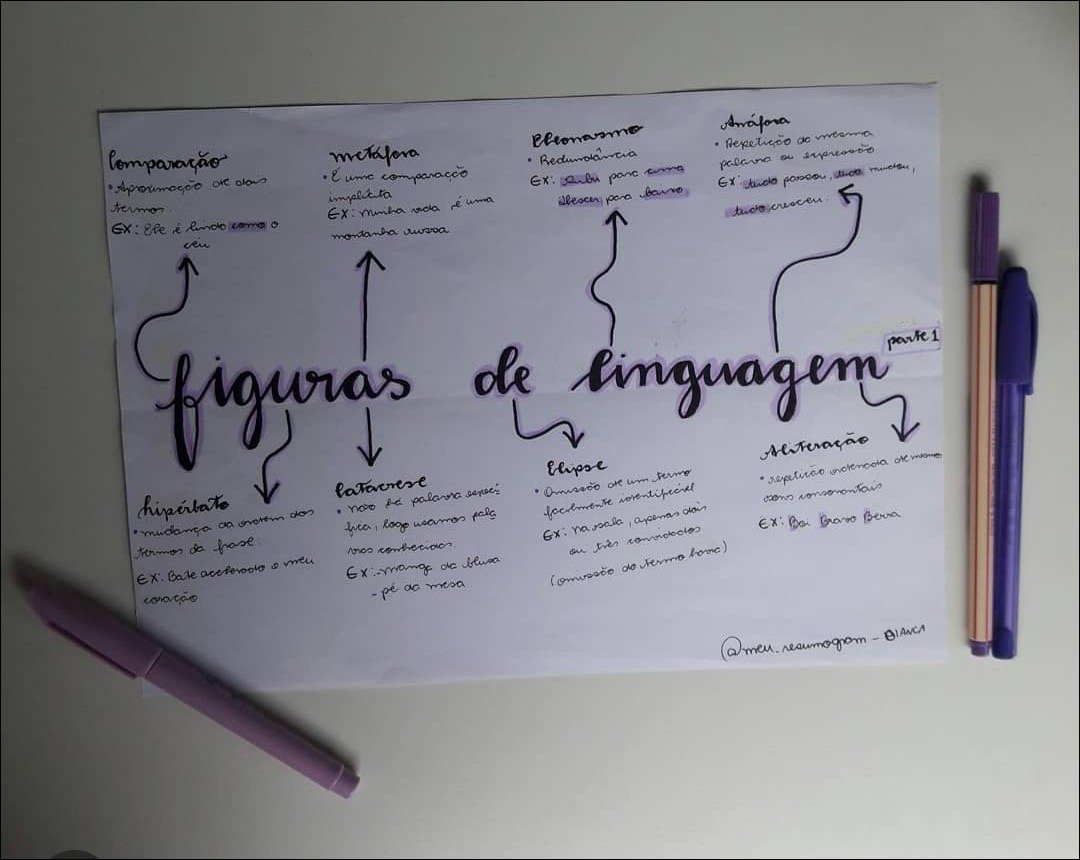 Comparação
• Aproximação de dois
termos.
EX: Ele é lindo como o
céu
metáfora
• É uma comparação
implícita
EX: minha vida é uma
montanha russa
Pleonasmo
• Redundância
EX: Subir para cima
descer para baixo
Anáfora
• Repetição da mesma
palavra ou expressão
EX: tudo passou, tudo mudou,
tudo cresceu.
figuras de linguagem
parte 1
hipérbato
• mudança da ordem dos
termos da frase.
EX: Bate acelerado o meu
coração
Catacrese
• não há palavra especí-
fica, logo usamos pala
vras conhecidas
EX: - manga da blusa
- pé da mesa
Elipse
• Omissão de um termo
facilmente identificável
EX: na sala, apenas dois
ou três convidados
(omissão do termo havia)
Aliteração
• repetição ordenada de mesmos
sons consonantais
EX: Boi Bravo Berra
@meu_resumogram - BIANCA